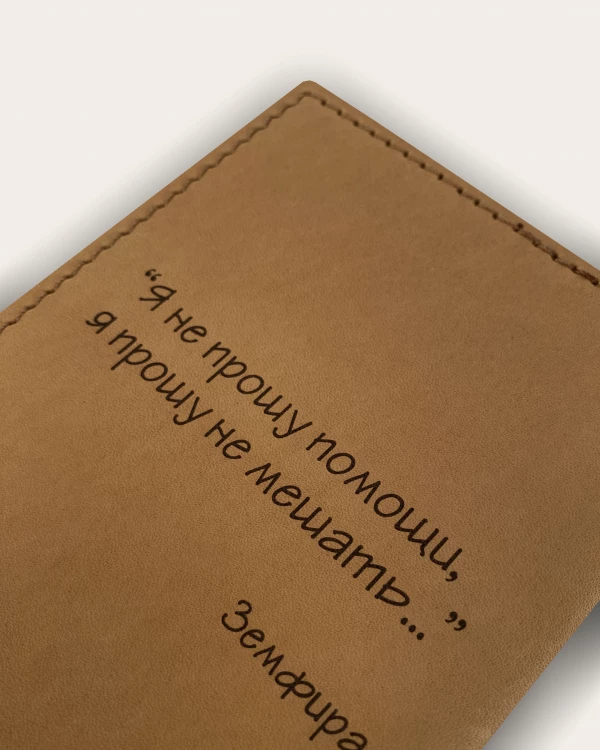 “Я не прошу помощи,
я прошу не мешать...”
Земфира